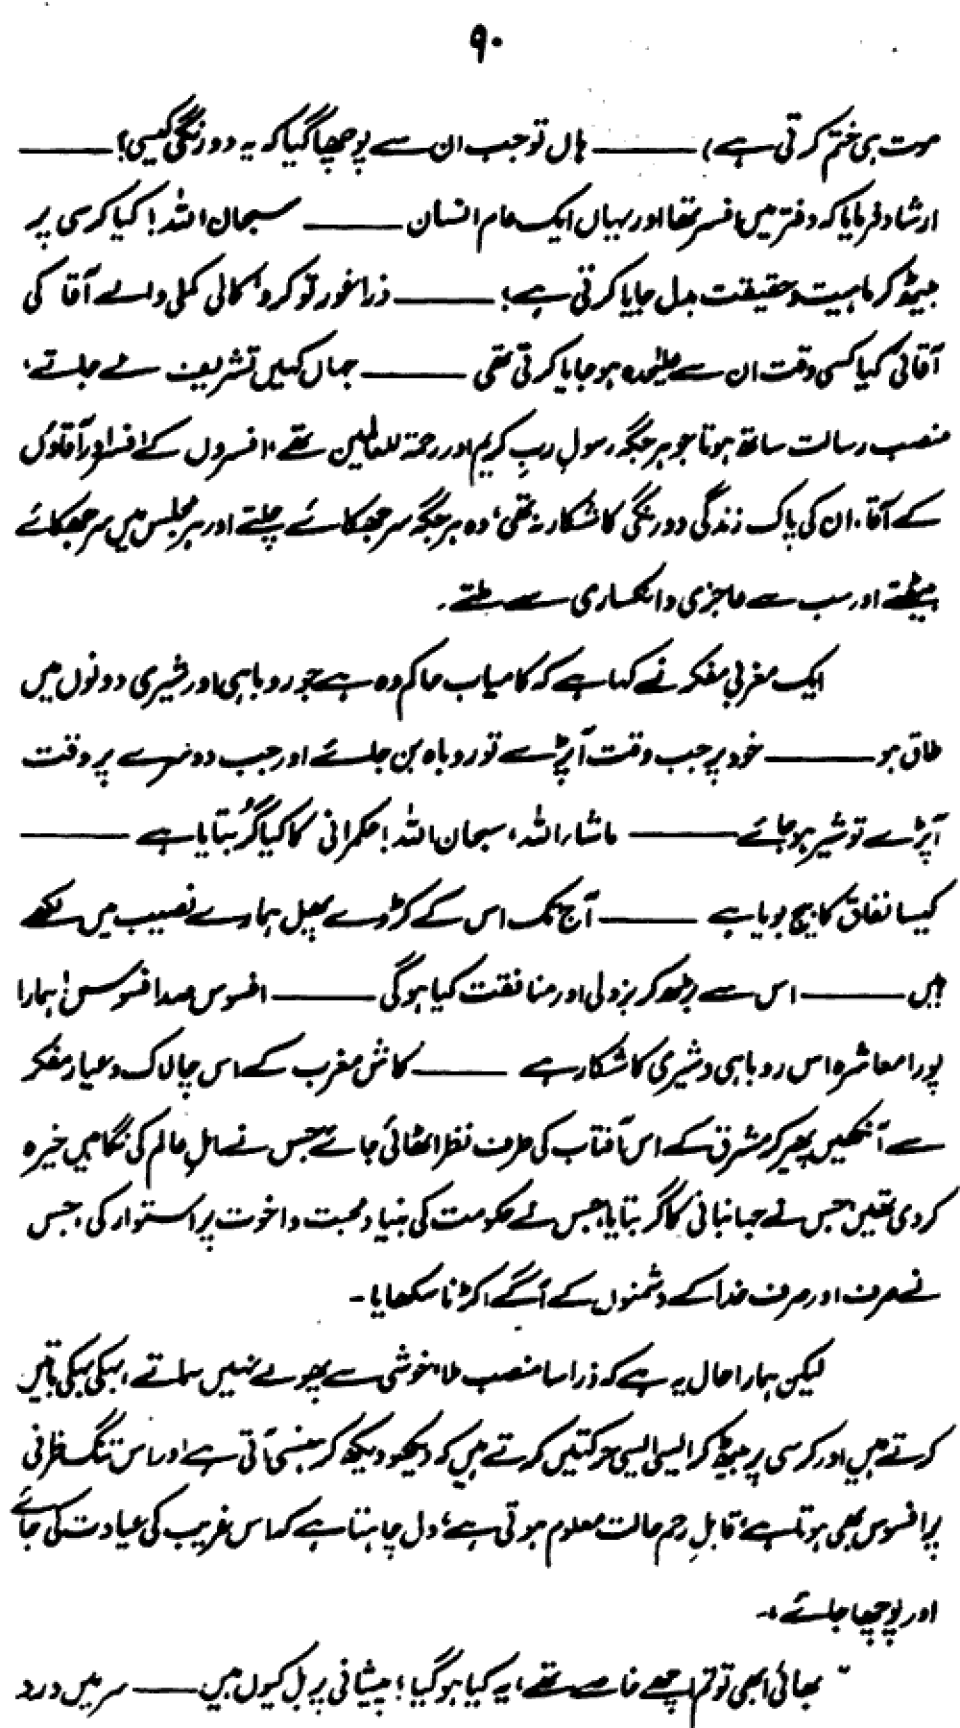 ۹۰
موت ہی ختم کرتی ہے) ——— ہاں تو جب ان سے پوچھا گیا کہ یہ دورنگی کیسی؟ ———
ارشاد فرمایا کہ دفتر میں افسر تھا اور یہاں ایک عام انسان ——— سبحان اللہ! کیا کرسی پر
بیٹھ کر ماہیت و حقیقت بدل جایا کرتی ہے؛ ——— ذرا غور تو کرو، کالی کملی والے آقا کی
آقائی کیا کسی وقت ان سے علیٰحدہ ہو جایا کرتی تھی ——— جہاں کہیں تشریف لے جاتے،
منصب رسالت ساتھ ہوتا جو ہر جگہ رسولِ ربِ کریم اور رحمۃ للعالمین تھے، افسروں کے افسر اور آقاؤں
کے آقا، ان کی پاک زندگی دورنگی کا شکار نہ تھی، وہ ہر جگہ سر جھکائے چلتے اور ہر مجلس میں سر جھکائے
بیٹھتے اور سب سے عاجزی و انکساری سے ملتے۔
ایک مغربی مفکر نے کہا ہے کہ کامیاب حاکم وہ ہے جو روباہی اور شیری دونوں میں
طاق ہو ——— خود پر جب وقت آپڑے تو روباہ بن جائے اور جب دوسرے پر وقت
آپڑے تو شیر ہو جائے ——— ماشاء اللہ، سبحان اللہ! حکمرانی کا کیا گُر بتایا ہے ———
کیسا نفاق کا بیج بویا ہے ——— آج تک اس کے کڑوے پھل ہمارے نصیب میں لکھے
ہیں ——— اس سے بڑھ کر بزدلی اور منافقت کیا ہوگی ——— افسوس صد افسوس! ہمارا
پورا معاشرہ اس روباہی و شیری کا شکار ہے ——— کاش مغرب کے اس چالاک و عیار مفکر
سے آنکھیں پھیر کر مشرق کے اس آفتاب کی طرف نظر اٹھائی جائے جس نے اہلِ عالم کی نگاہیں خیرہ
کردی تھیں، جس نے جہانبانی کا گر بتایا، جس نے حکومت کی بنیاد محبت و اخوت پر استوار کی، جس
نے صرف اور صرف خدا کے دشمنوں کے آگے اکڑنا سکھایا۔
لیکن ہمارا حال یہ ہے کہ ذرا سا منصب ملا، خوشی سے پھولے نہیں سماتے، بہکی بہکی باتیں
کرتے ہیں اور کرسی پر بیٹھ کر ایسی ایسی حرکتیں کرتے ہیں کہ دیکھ دیکھ کر ہنسی آتی ہے اور اس تنگ ظرفی
پر افسوس بھی ہوتا ہے، قابلِ رحم حالت معلوم ہوتی ہے، دل چاہتا ہے کہ اس غریب کی عیادت کی جائے
اور پوچھا جائے:۔
"بھائی ابھی تو تم اچھے خاصے تھے، یہ کیا ہو گیا؛ پیشانی پر بل کیوں ہیں ——— سر میں درد